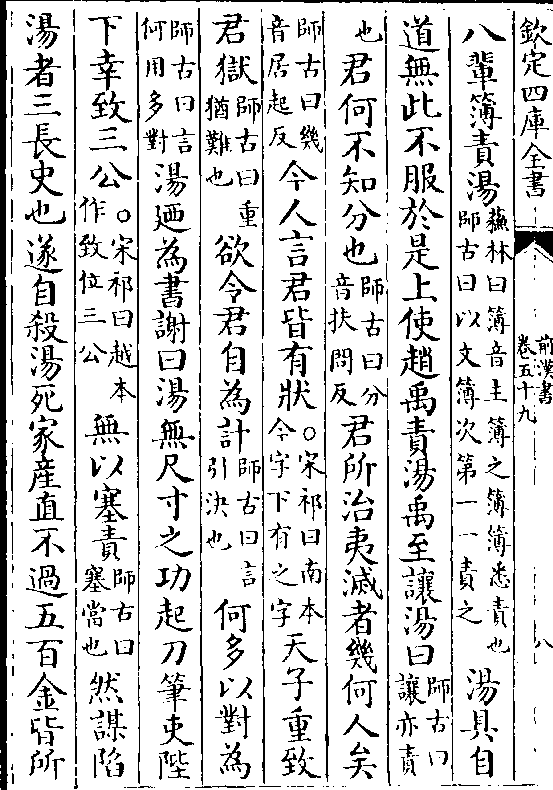 欽定四庫全書
前漢書
卷五十九
八
八輩簿責湯蘇林曰簿音主簿之簿簿悉責也師古曰以文簿次第一一責之湯具自
道無此不服於是上使趙禹責湯禹至讓湯曰師古曰讓亦責
也君何不知分也師古曰分音扶問反君所治夷滅者幾何人矣
師古曰幾音居起反今人言君皆有狀○宋祁曰南本今字下有之字天子重致
君獄師古曰重猶難也欲令君自為計師古曰言引決也何多以對為
師古曰言何用多對湯廼為書謝曰湯無尺寸之功起刀筆吏陛
下幸致三公○宋祁曰越本作致位三公無以塞責師古曰塞當也然謀陷
湯者三長史也遂自殺湯死家産直不過五百金皆所